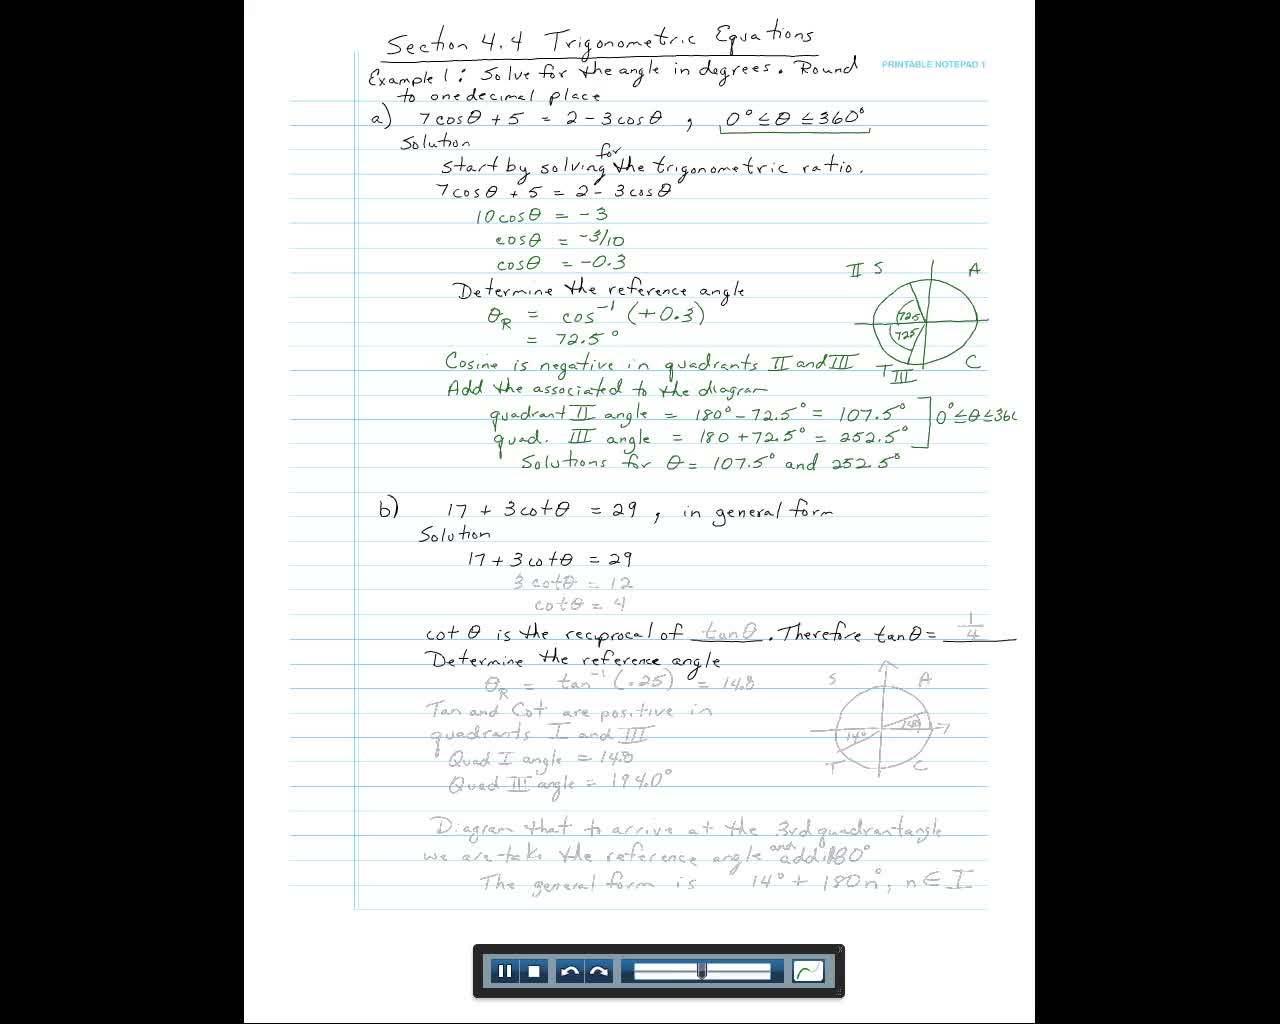 Section 4.4 Trigonometric Equations
PRINTABLE NOTEPAD 1
Example 1: Solve for the angle in degrees. Round
to one decimal place
a) 7cosθ + 5 = 2 - 3cosθ , 0° ≤ θ ≤ 360°
Solution
Start by solving for the trigonometric ratio.
7cosθ + 5 = 2 - 3cosθ
10cosθ = -3
cosθ = -3/10
cosθ = -0.3
II S A
Determine the reference angle
θR = cos⁻¹ (+0.3)
72.5
= 72.5°
72.5
Cosine is negative in quadrants II and III
T III C
Add the associated to the diagram
quadrant II angle = 180° - 72.5° = 107.5°
0° ≤ θ ≤ 360
quad. III angle = 180 + 72.5° = 252.5°
Solutions for θ = 107.5° and 252.5°
b) 17 + 3cotθ = 29 , in general form
Solution
17 + 3cotθ = 29
3cotθ = 12
cotθ = 4
cot θ is the reciprocal of tanθ . Therefore tanθ = 1/4
Determine the reference angle
θR = tan⁻¹ (.25) = 14.8
S A
Tan and Cot are positive in
quadrants I and III
14°
Quad I angle = 14.0
T C
Quad III angle = 194.0°
Diagram that to arrive at the 3rd quadrant angle
we are take the reference angle and add 180°
The general form is 14° + 180n°, n ∈ I